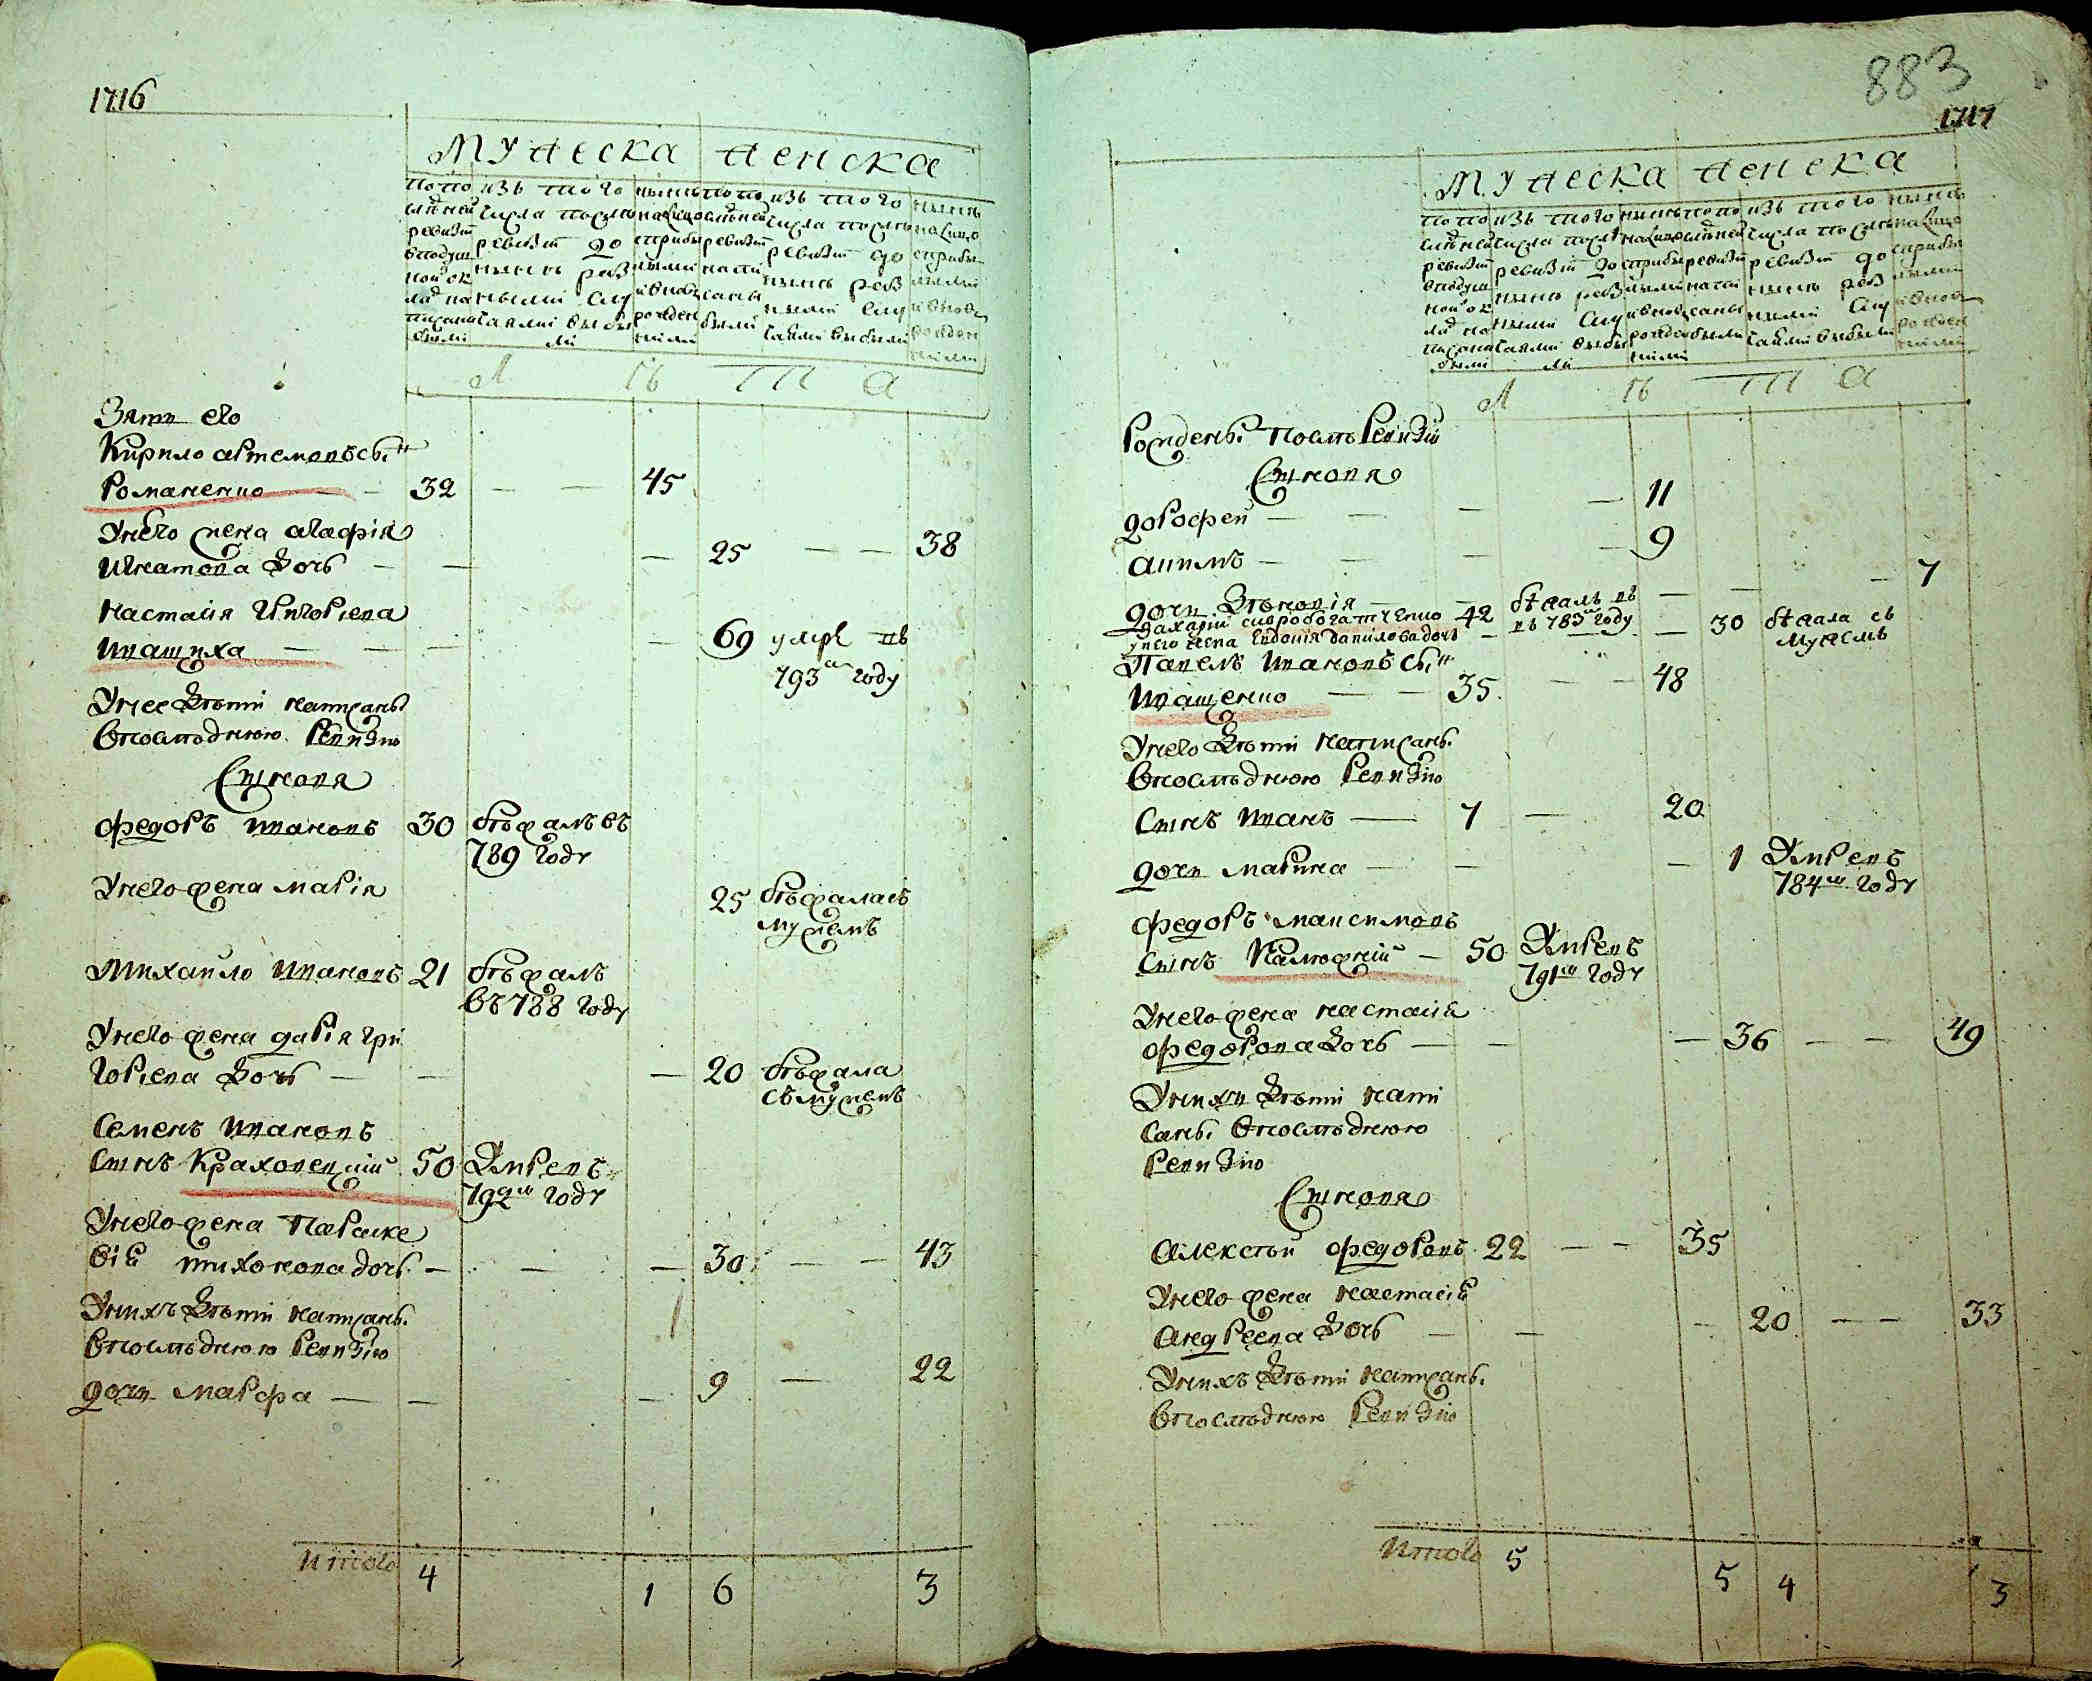 1716
мужеска женска
по по
слѣдней
ревизіи
в подуш
ной ок
лад на
писано
были
изъ того
числа послѣ
ревизіи до
нынѣ раз
ными слу
чаями выбы
ли
нынѣ
налицо
с прибы
лыми
и вновь
рожден
ными
по по
слѣдней
ревизіи
напи
саны
были
изъ того
числа послѣ
ревизіи до
нынѣ раз
ными слу
чаями выбыли
нынѣ
налицо
с прибы
лыми
и вновь
рожден
ными
Л Ѣ Т А
Зять его
Кирило артемовъ сынъ
Романенко — — 32 — — 45
У него жена агафія
Игнатова дочь — — — 25 — — 38
Настасія Григориева
Ивашиха — — — — 69 умре въ
793м году
У нее дѣти написаны
в последнюю ревизію
Синовя
федоръ ивановъ 30 бѣжалъ въ
789 году
У него жена марія 25 бѣжала съ
мужемъ
Михайло ивановъ 21 бѣжалъ
въ 788 году
У него жена дарія гри
гориева дочь — — — 20 бѣжала
съ мужемъ
Семенъ ивановъ
синъ Краховецкій 50 Умревъ
792м году
У него жена Параске
вія тихонова дочь — — — 30 — — 43
У нихъ дѣти написаны
в последнюю ревизію
дочи марфа — — — 9 — 22
Итого 4 1 6 3
883
1717
мужеска женска
по по
слѣдней
ревизіи
в подуш
ной ок
лад на
писано
были
изъ того
числа послѣ
ревизіи до
нынѣ раз
ными слу
чаями выбы
ли
нынѣ
налицо
с прибы
лыми
и вновь
рожден
ными
по по
слѣдней
ревизіи
напи
саны
были
изъ того
числа послѣ
ревизіи до
нынѣ раз
ными слу
чаями выбыли
нынѣ
налицо
с прибы
лыми
и вновь
рожден
ными
Л Ѣ Т А
Рождены послѣ ревизіи
Синовя
дорофей — — — — 11
акимъ — — — — 9
дочи Зѣновія — — — — — 7
Захарій скоробогатченко 42 бѣжалъ въ
въ 783м году
у него жена Евдокія данилова дочь — — — 30 бѣжала съ
мужемъ
Павелъ ивановъ сынъ
Иващенко — — 35 — — 48
У него дѣти написаны
в последнюю ревизію
Синъ иванъ — 7 — 20
дочи марина — — — 1 Умревъ
784м году
федоръ максимовъ
синъ Калюжній — 50 Умревъ
791м году
У него жена настасія
федорова дочь — — — 36 — — 49
У нихъ дѣти напи
саны в последнюю
ревизію
Синовя
алексѣй федоровъ 22 — — 35
У него жена настасія
андреева дочь — — — 20 — — 33
У нихъ дѣти написаны
в последнюю ревизію
Итого 5 5 4 3